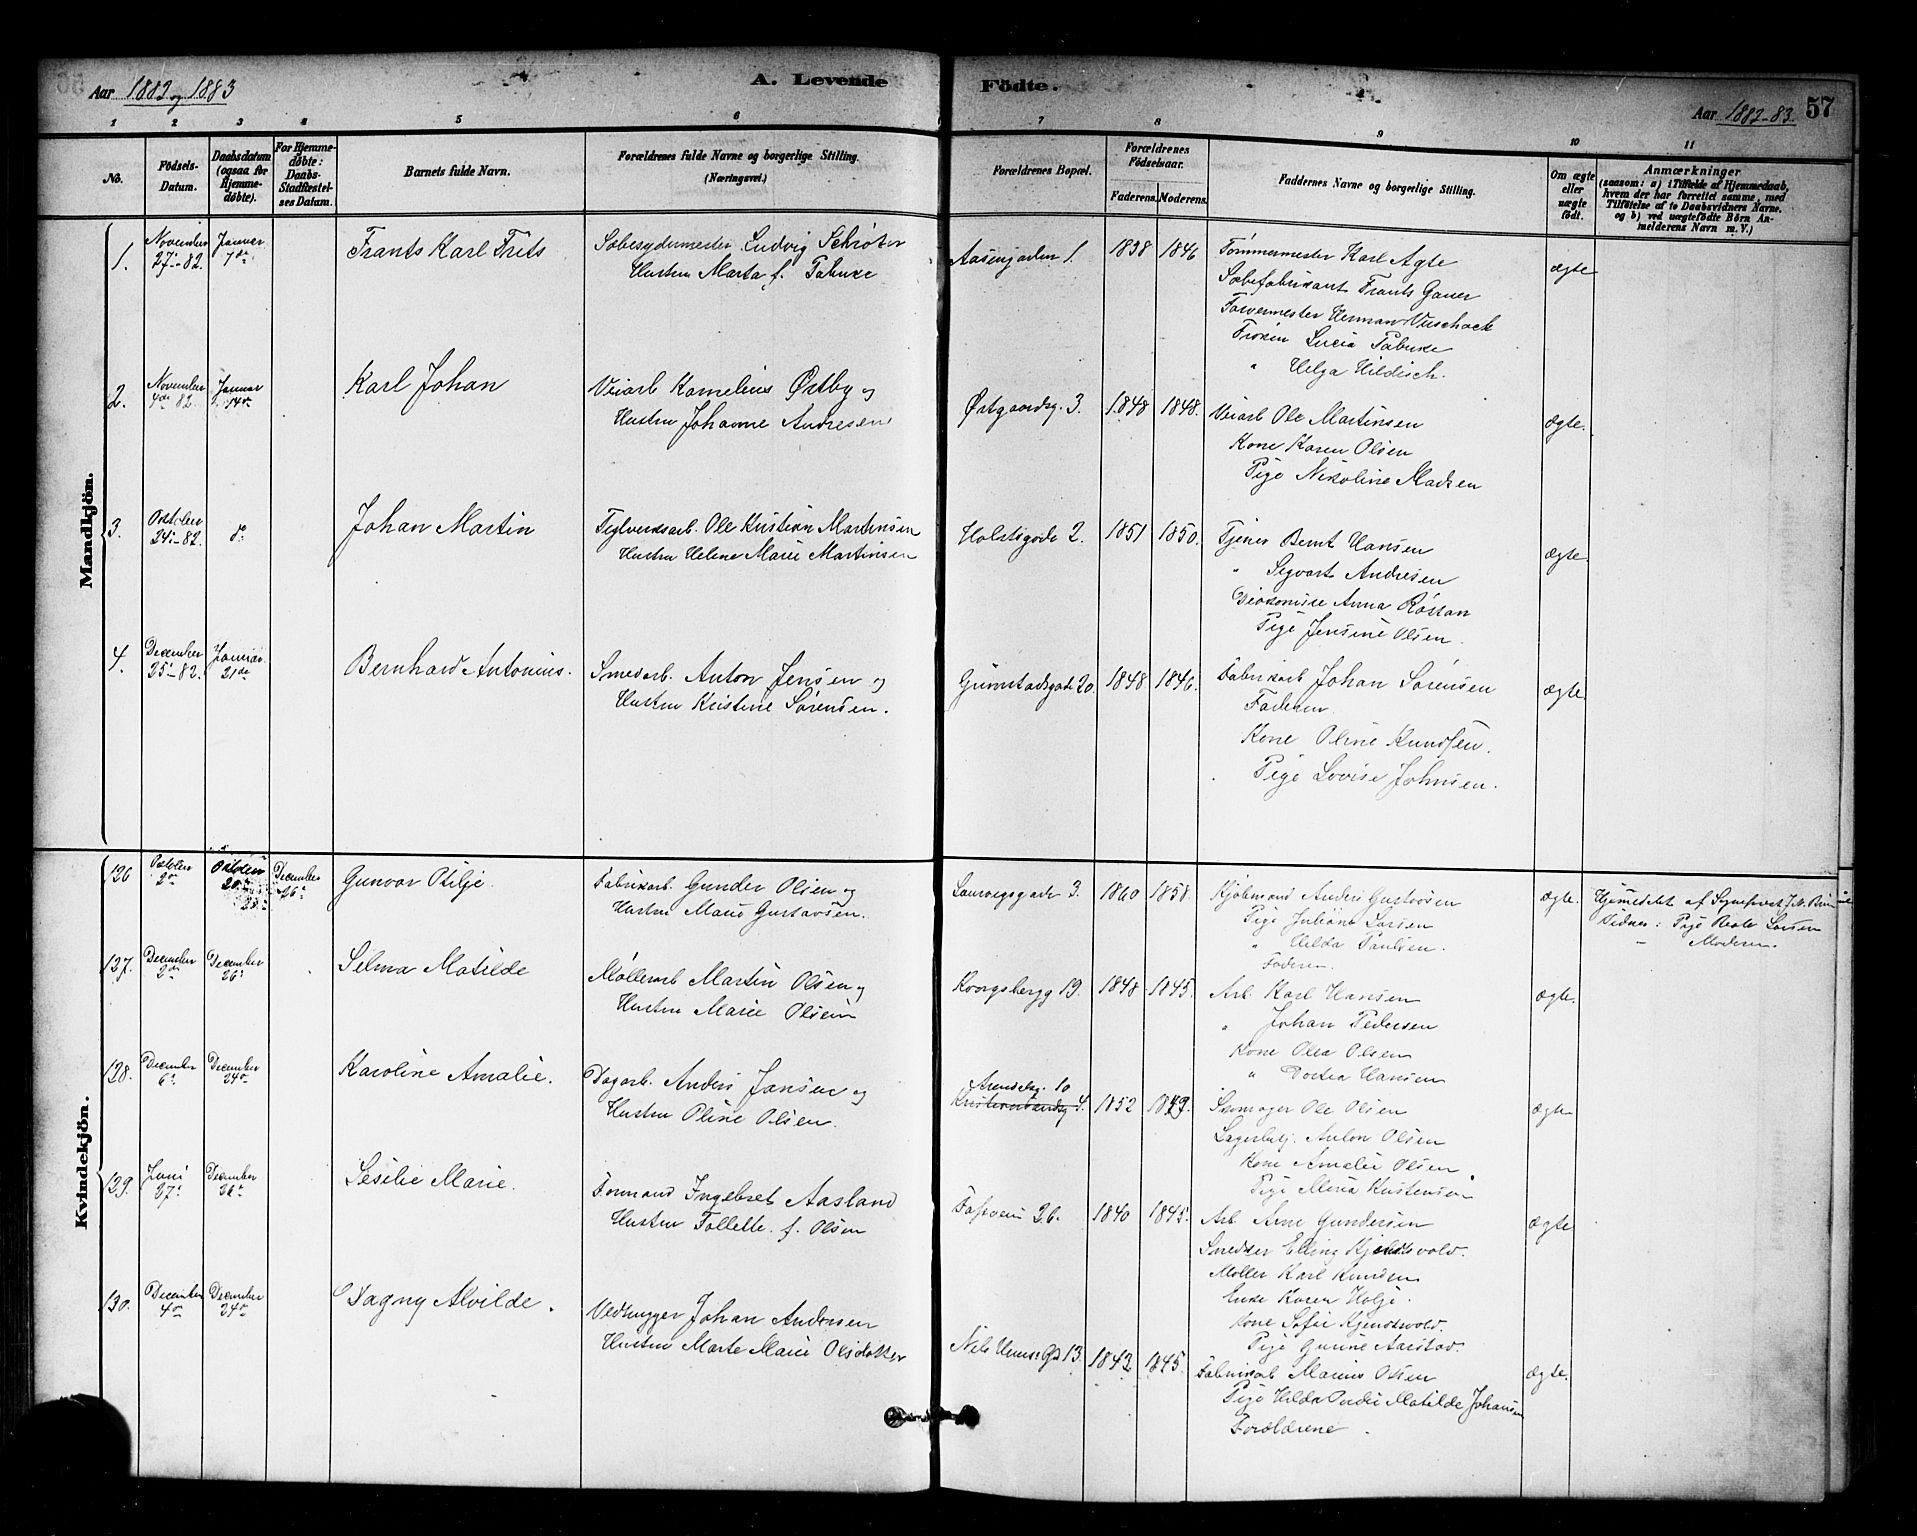 Aar 1882 og 1883
A. Levende
Födte.
Aar 1882-83.
57
1 2 3 4 5 6 7 8 9 10 11
No.
Födsels-Datum.
Daabsdatum (ogsaa for Hjemme-döbte).
For Hjemme-döbte: Daabs-Stadfæstelses Datum.
Barnets fulde Navn.
Forældrenes fulde Navne og borgerlige Stilling. (Næringsvei.)
Forældrenes Bopæl.
Forældrenes Födselsaar.
Faderens. Moderens.
Faddernes Navne og borgerlige Stilling.
Om ægte eller uægte födt.
Anmærkninger
(saasom: a) i Tilfælde af Hjemmedaab, hvem der har forrettet samme, med Tilföielse af to Daabsvidners Navne. og b) ved uægtefödte Börn Anmelderens Navn m. V.)
Mandkjön.
1. November 27 - 82. Januar 7de Frants Karl Frits
Sæbesydermester Ludvig Schrøter
Hustru Marta f. Tabuke
1838 1846
Tømmermester Karl Agte
Sæbefabrikant Frants Gauer
Farvermester Herman
Frøken Lucia Tabuke
" Helga Hildisch.
ægte
2. November 4de 82. Januar 14de Karl Johan
Veiarb Kornelius Østby og
Hustru Johanne Andresen
Østgaardsg. 3. 1848 1848.
Veiarb Ole Martinsen
Kone Karen Olsen
Pige Nikoline Madsen
ægte.
3. Oktober 24 - 82. do Johan Martin
Teglverksarb. Ole Kristian Martinsen
Hustru Helene Marie Martinsen
Holstsgade 2. 1851 1850.
Tjener Bernt Hansen
" Sigvart Andresen
Diakonisse Anna
Pige Jensine Olsen.
ægte.
4. December 25 - 82. Januar 21de Bernhard Antonius.
Smedarb. Anton Jensen og
Hustru Kristine Sørensen.
Grimstadsgade 20. 1848 1846.
Fabrikarb Johan Sørensen
Faderen
Kone Oline Knudsen.
Pige Lovise Johnsen.
ægte.
Kvindekjön.
126 Oktober 2den Oktober 20 December 26 Gunvor Otilje.
Fabrikarb. Gunder Olsen og
Hustru Marie Gustavsen.
Laurvigsgade 3. 1860 1858.
Kjøbmand Anders Gustavsen
Pige Juliane Larsen
" Hilda Paulsen.
Faderen.
ægte.
Hjemmedøbt af Sogneprest J. N.
Vidner: Pige Larsen
– Moderen.
127. December 2den December 26 Selma Matilde
Møllerarb Martin Olsen og
Hustru Marie Olsen
19. 1848 1845.
Arb. Karl Hansen
" Johan Pedersen
Kone Olea Olsen
" Dortea Hansen
ægte.
128. December 6 December 24de Karoline Amalie.
Dagarb. Anders Jansen og
Hustru Oline Olsen.
Arendalsg. 10
Kristianssandsg 4. 1852 1849.
Skomager Ole Olsen
Lagerbetj. Anton Olsen
Kone Amalie Olsen
Pige Maria Kristensen
ægte
129. Juni 27 December 26 Sesilie Marie.
Formand Ingebret Aasland
Hustru Tollette. f. Olsen
26. 1840 1845.
Arb. Arne Gundersen
Smedker Elling
Møller Karl Knudsen
Enke Karen Holje.
Kone Sofie
Pige Gurine
ægte
130. December 4de December 24de Dagny Alvilde.
Vedhugger Johan Andersen
Hustru Marte Marie Olsdatter
13. 1843 1845.
Fabrikarb Marius Olsen
Pige Hilda Matilde Johansen
Forældrene.
ægte.